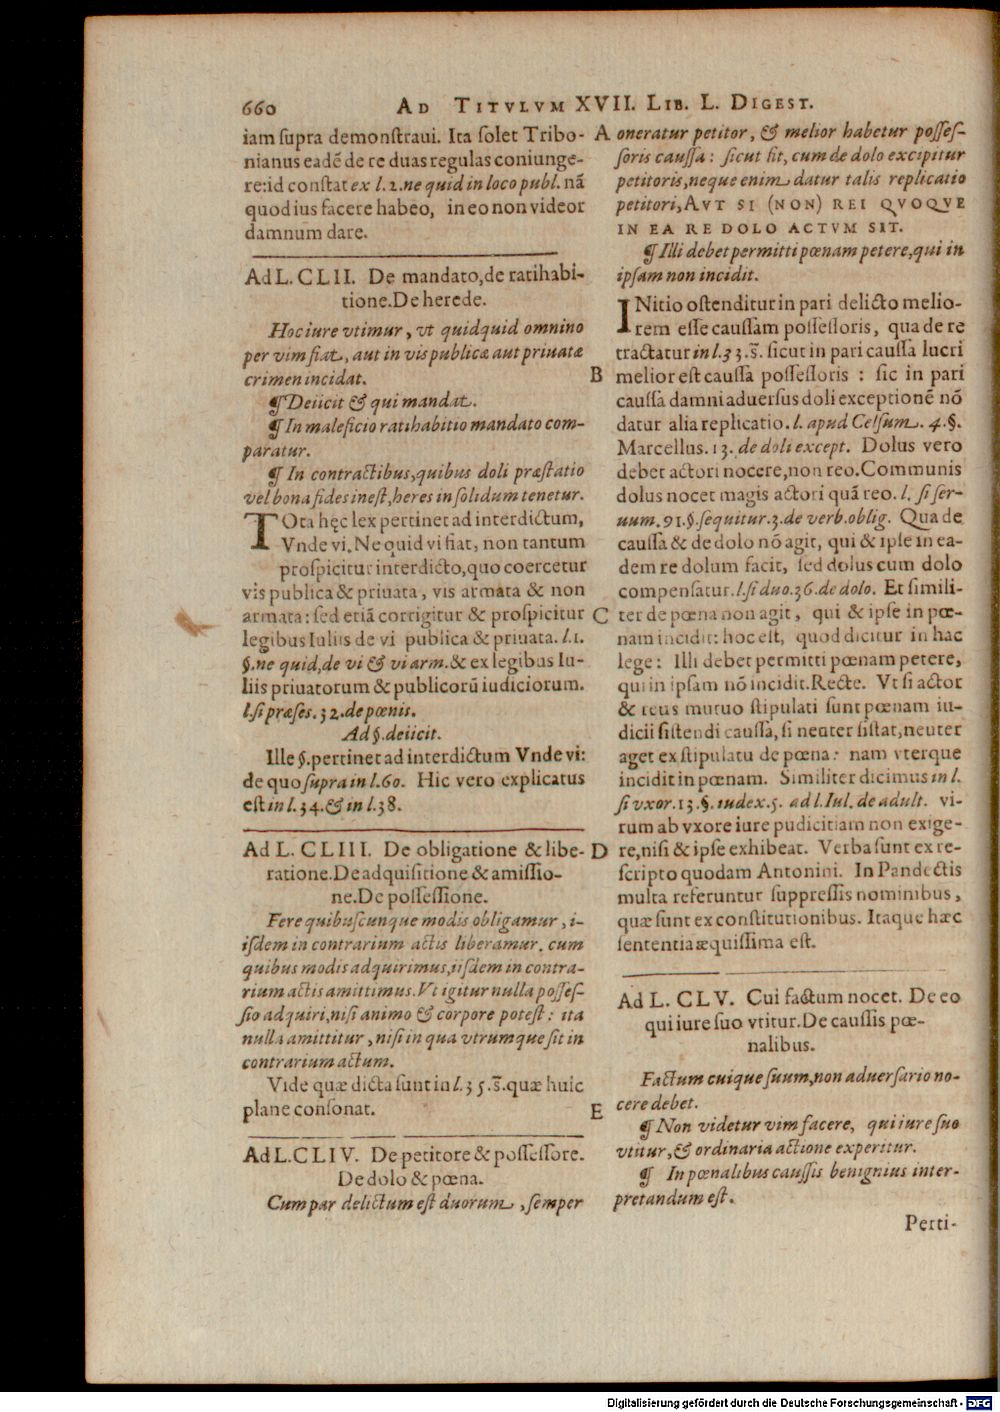 660 AD TITVLVM XVII. LIB. L. DIGEST.
iam supra demonstraui. Ita solet Tribo-
nianus eadē de re duas regulas coniunge-
re: id constat ex l. 2. ne quid in loco publ. nā
quod ius facere habeo, in eo non videor
damnum dare.
Ad L. CLII. De mandato, de ratihabi-
tione. De herede.
Hoc iure vtimur, vt quidquid omnino
per vim fiat, aut in vis publicæ aut priuatæ
crimen incidat.
¶ Deiicit & qui mandat.
¶ In maleficio ratihabitio mandato com-
paratur.
¶ In contractibus, quibus doli præstatio
vel bona fides inest, heres in solidum tenetur.
TOta hęc lex pertinet ad interdictum,
Vnde vi. Ne quid vi fiat, non tantum
prospicitur interdicto, quo coercetur
vis publica & priuata, vis armata & non
armata: sed etiā corrigitur & prospicitur
legibus Iuliis de vi publica & priuata. l. 1.
§. ne quid, de vi & vi arm. & ex legibus Iu-
liis priuatorum & publicorū iudiciorum.
l. si præses. 32. de pœnis.
Ad §. deiicit.
Ille §. pertinet ad interdictum Vnde vi:
de quo supra in l. 60. Hic vero explicatus
est in l. 34. & in l. 38.
Ad L. CLIII. De obligatione & libe-
ratione. De adquisitione & amissio-
ne. De possessione.
Fere quibuscunque modis obligamur, i-
isdem in contrarium actis liberamur. cum
quibus modis adquirimus, iisdem in contra-
rium actis amittimus. Vt igitur nulla posses-
sio adquiri, nisi animo & corpore potest: ita
nulla amittitur, nisi in qua vtrumque sit in
contrarium actum.
Vide quæ dicta sunt in l. 35. s̄. quæ huic
plane consonat.
Ad L. CLIV. De petitore & possessore.
De dolo & pœna.
Cum par delictum est duorum, semper
A oneratur petitor, & melior habetur posses-
soris caussa: sicut fit, cum de dolo excipitur
petitoris, neque enim datur talis replicatio
petitori, AVT SI (NON) REI QVOQVE
IN EA RE DOLO ACTVM SIT.
¶ Illi debet permitti pœnam petere, qui in
ipsam non incidit.
INitio ostenditur in pari delicto melio-
rem esse caussam possessoris, qua de re
tractatur in l. 33. s̄. sicut in pari caussa lucri
B melior est caussa possessoris: sic in pari
caussa damni aduersus doli exceptionē nō
datur alia replicatio. l. apud Celsum. 4. §.
Marcellus. 13. de doli except. Dolus vero
debet actori nocere, non reo. Communis
dolus nocet magis actori quā reo. l. si ser-
uum. 91. §. sequitur. 3. de verb. oblig. Qua de
caussa & de dolo nō agit, qui & ipse in ea-
dem re dolum facit, sed dolus cum dolo
compensatur. l. si duo. 36. de dolo. Et simili-
C ter de pœna non agit, qui & ipse in pœ-
nam incidit: hoc est, quod dicitur in hac
lege: Illi debet permitti pœnam petere,
qui in ipsam nō incidit. Recte. Vt si actor
& reus mutuo stipulati sunt pœnam iu-
dicii sistendi caussa, si neuter sistat, neuter
aget ex stipulatu de pœna: nam vterque
incidit in pœnam. Similiter dicimus in l.
si vxor. 13. §. iudex. 5. ad l. Iul. de adult. vi-
rum ab vxore iure pudicitiam non exige-
D re, nisi & ipse exhibeat. Verba sunt ex re-
scripto quodam Antonini. In Pandectis
multa referuntur suppressis nominibus,
quæ sunt ex constitutionibus. Itaque hæc
sententia æquissima est.
Ad L. CLV. Cui factum nocet. De eo
qui iure suo vtitur. De caussis pœ-
nalibus.
Factum cuique suum, non aduersario no-
E cere debet.
¶ Non videtur vim facere, qui iure suo
vtitur, & ordinaria actione experitur.
¶ In pœnalibus caussis benignius inter-
pretandum est.
Perti-
Digitalisierung gefördert durch die Deutsche Forschungsgemeinschaft - DFG